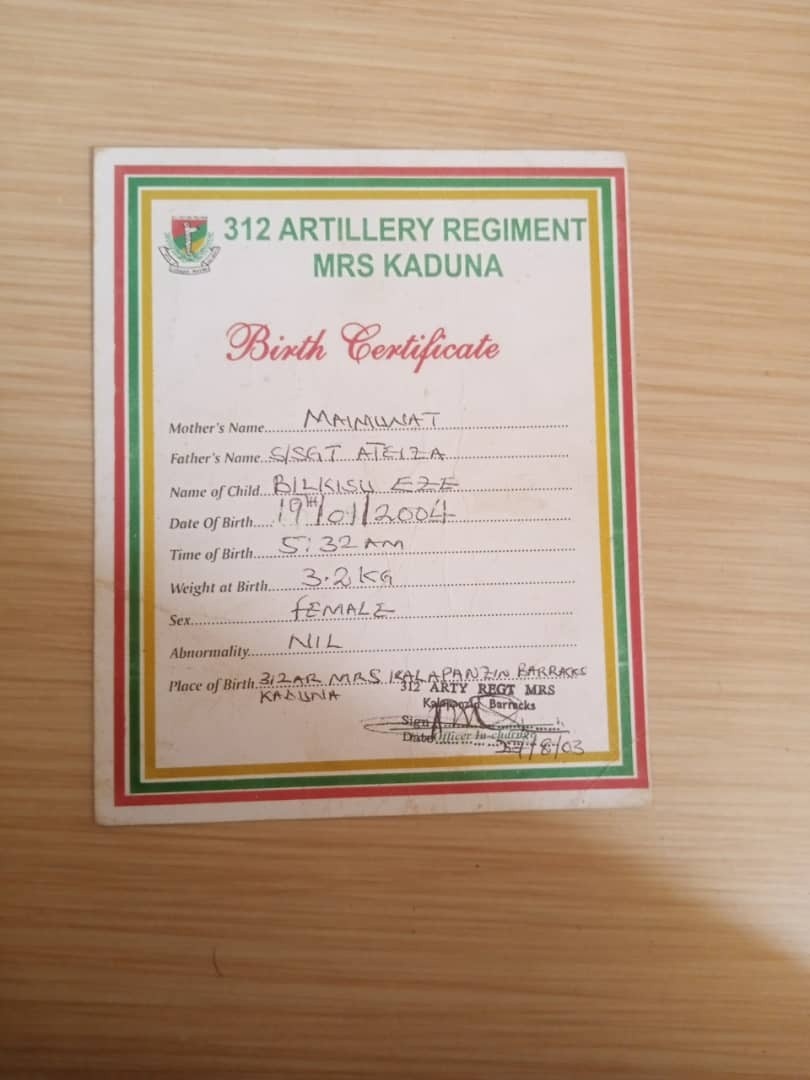 312 ARTILLERY REGIMENT
MRS KADUNA
Birth Certificate
Mother's Name MAIMUNAT
Father's Name S/SGT ATEIZA
Name of Child BILKISU EZE
Date Of Birth 19TH/01/2004
Time of Birth 5:32 AM
Weight at Birth 3.2KG
Sex FEMALE
Abnormality NIL
Place of Birth 312AR MRS KALAPANZIN BARRACKS
KADUNA
312 ARTY REGT MRS
Kalapanzin Barracks
Sign
Date Officer In-charge
27/8/03